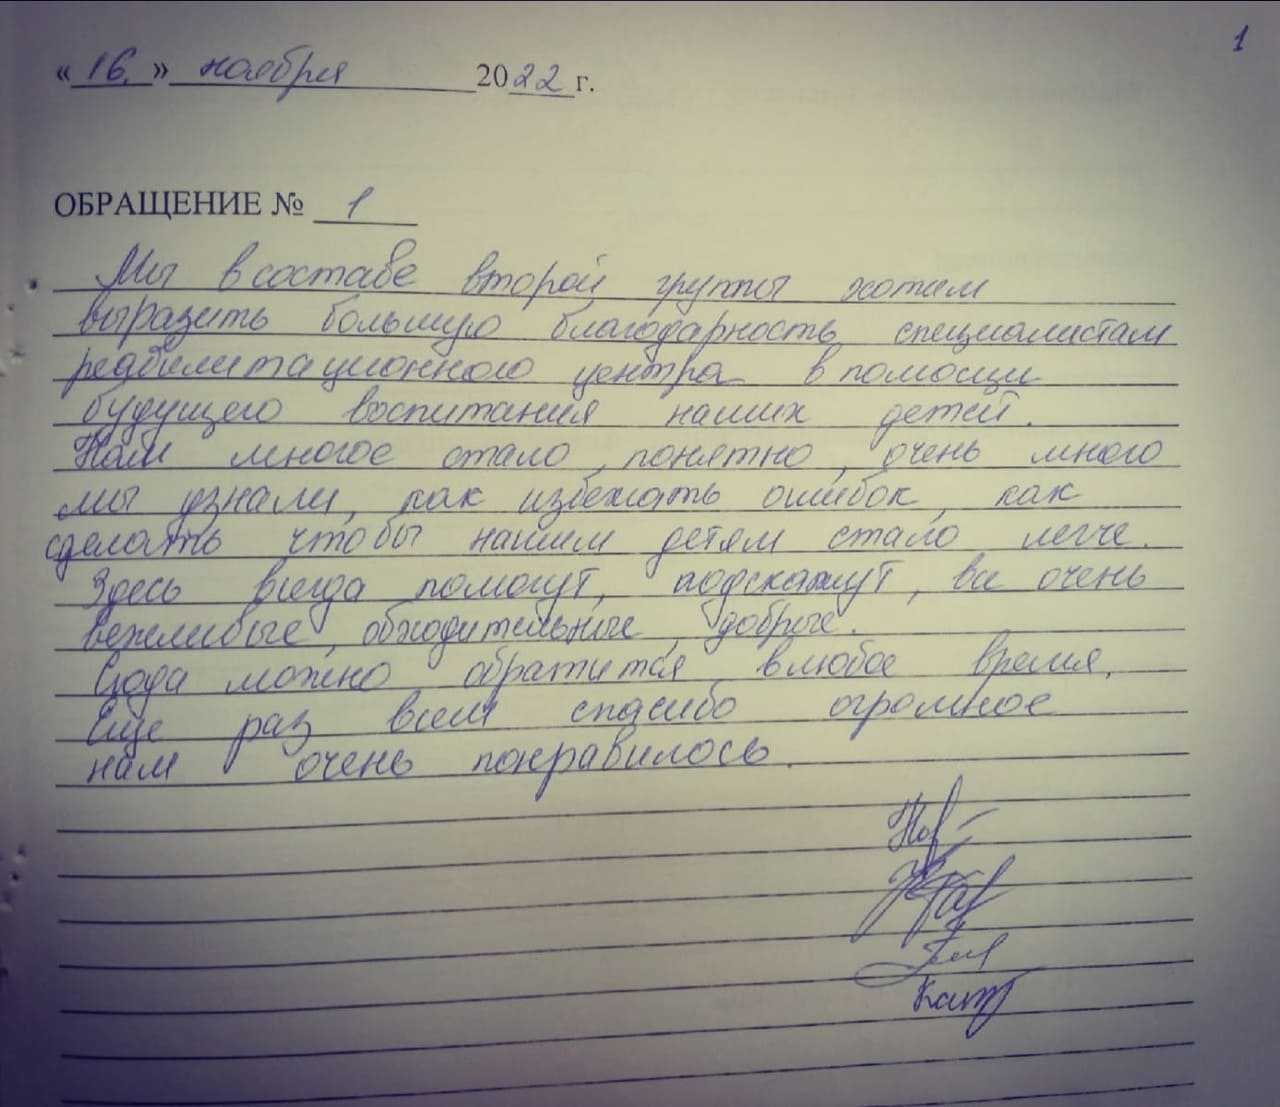 1
«16.» ноября 2022 г.
ОБРАЩЕНИЕ № 1
Мы в составе второй группы хотим
выразить большую благодарность специалистам
реабилитационного центра в помощи
будущего воспитания наших детей.
Нам многое стало понятно, очень много
мы узнали, как избежать ошибок, как
сделать чтобы нашим детям стало легче.
Здесь всегда помогут, подскажут, все очень
вежливые, обходительные, добрые.
Сюда можно обратится в любое время.
Еще раз всем спасибо огромное
нам очень понравилось.